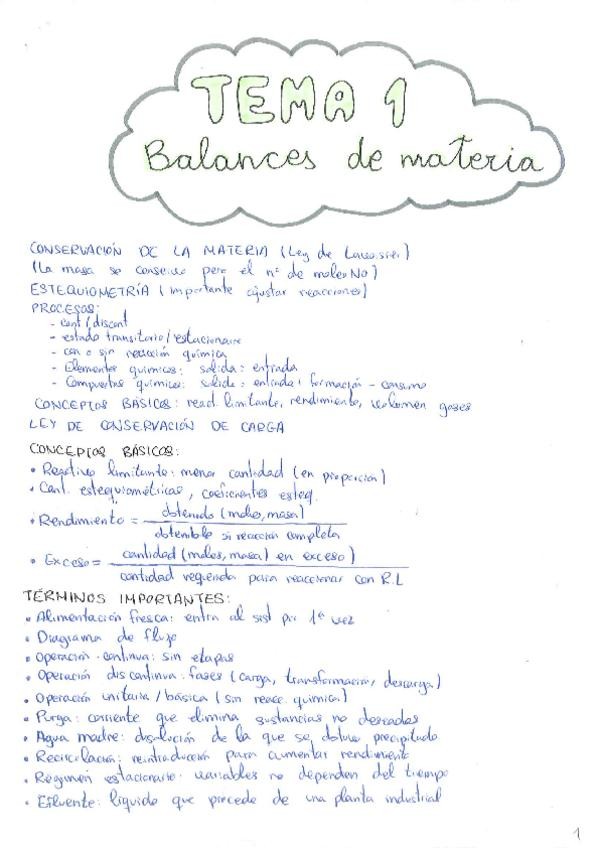 TEMA 1
Balances de materia
CONSERVACIÓN DE LA MATERIA (Ley de Lavoisier)
(La masa se conserva pero el nº de moles NO)
ESTEQUIOMETRÍA (importante ajustar reacciones)
PROCESOS:
- cont/discont
- estado transitorio/estacionario
- con o sin reacción química
- Elementos químicos: salida = entrada
- Compuestos químicos: salida = entrada + formación - consumo
CONCEPTOS BÁSICOS: react. limitante, rendimiento, volumen gases
LEY DE CONSERVACIÓN DE CARGA
CONCEPTOS BÁSICOS:
• Reactivo limitante: menor cantidad (en proporción)
• Cant. estequiométricas, coeficientes esteq.
• Rendimiento = obtenido (moles, masa)
obtenible si reacción completa
• Exceso = cantidad (moles, masa) en exceso)
cantidad requerida para reaccionar con R.L
TÉRMINOS IMPORTANTES:
• Alimentación fresca: entra al sist por 1ª vez
• Diagrama de flujo
• Operación continua: sin etapas
• Operación discontinua: fases (carga, transformación, descarga)
• Operación unitaria/básica (sin reacc. química)
• Purga: corriente que elimina sustancias no deseadas
• Agua madre: disolución de la que se obtuvo precipitado
• Recirculación: reintroducción para aumentar rendimiento
• Régimen estacionario: variables no dependen del tiempo
• Efluente: líquido que procede de una planta industrial
1